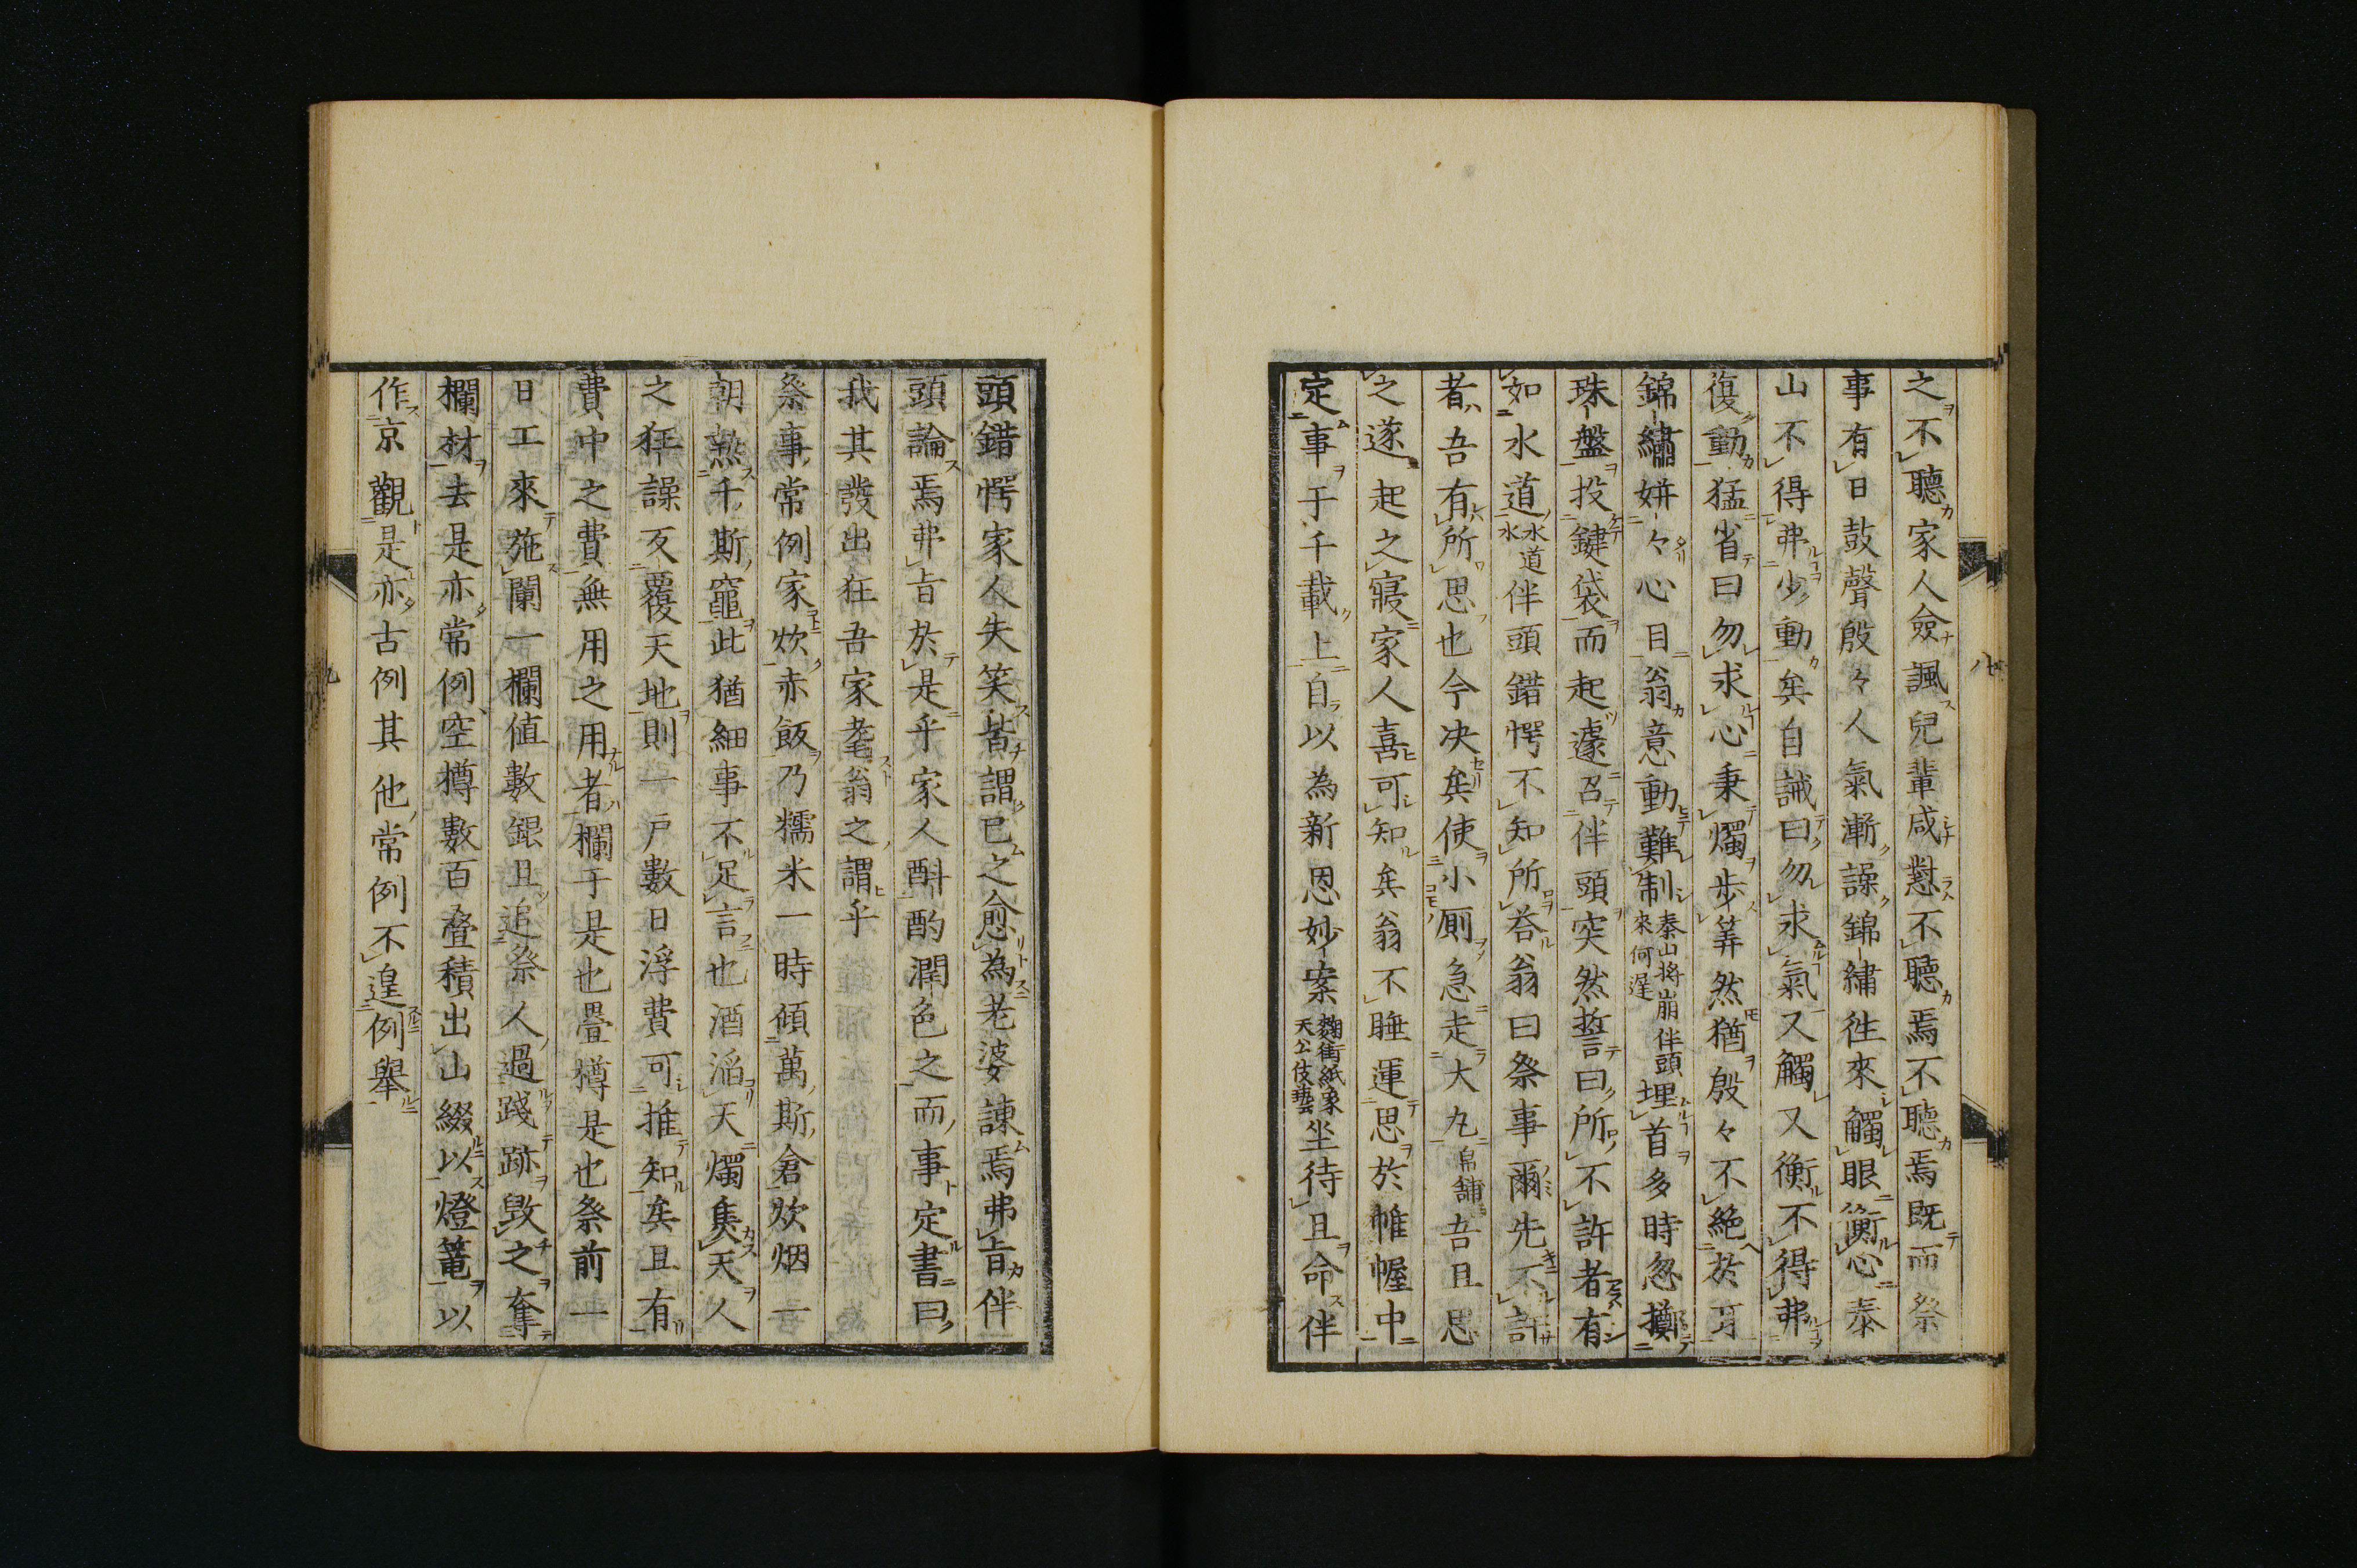 之不聽家人僉諷兒輩咸懟不聽焉不聽焉既而祭
事有日鼓聲殷々人氣漸譟錦繡徃來觸眼衡心泰
山不得弗少動矣自誡曰勿求氣又觸又衡不得弗
復動猛省曰勿求心秉燭步筭然猶殷々不絕於耳
錦繡姘々心目翁意動難制泰山將崩伴頭來何遲埋首多時忽擲
珠盤投鍵袋而起遽召伴頭突然誓曰所不許者有
如水道水道水伴頭錯愕不知所荅翁曰祭事爾先不許
者吾有所思也今决矣使小廝急走大丸帛舖吾且思
之遂起之寢家人喜可知矣翁不睡運思於帷幄中
定事于千載上自以為新思妙案麴街紙象天公伎藝坐待且命伴
八
頭錯愕家人失笑皆謂已之愈為老婆諫焉弗㫖伴
頭論焉弗㫖於是乎家人斟酌潤色之而事定書曰
我其發出狂吾家耄翁之謂乎
祭事常例家炊赤飯乃糯米一時傾萬斯倉炊烟一
朝熱千斯竈此猶細事不足言也酒滔天燭𤋱天人
之狂譟反覆天地則一戸數日浮費可推知矣且有
費中之費無用之用者欄于是也疊樽是也祭前一
日工來施闌一欄値數銀且追祭人過踐跡毀之奪
欄材去是亦常例空樽數百疊積出山綴以燈篭以
作京觀是亦古例其他常例不遑例舉
九